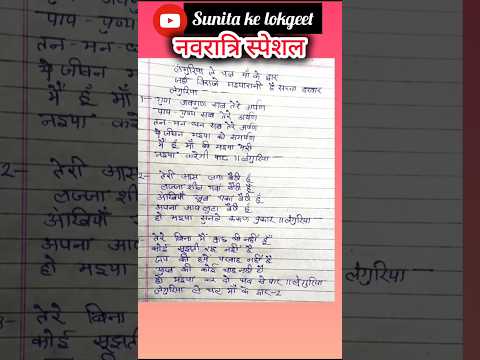 Sunita ke lokgeet
नवरात्रि स्पेशल
लंगुरिया ले चल माँ के द्वार
जहाँ विराजे मइयारानी है सच्चा दरबार
लंगुरिया
1- गुण अवगुण सब तेरे अर्पण
पाप पुण्य सब तेरे अर्पण
तन-मन-धन सब तेरे अर्पण
ये जीवन मइया को समर्पण
मैं हूँ माँ की मइया मेरी
मइया करेगी पार ॥लंगुरिया
2- तेरी आस लगा बैठी हूँ
लज्जा शील गवां बैठी हूँ
अंखियाँ खूब थका बैठी हूँ
अपना आप लुटा बैठी हूँ
हो मइया सुनले करुण पुकार ॥लंगुरिया
तेरे बिना मैं कुछ भी नहीं हूँ
कोई सूझती राह नहीं है
जग की हमें परवाह नहीं है
मुझे की कोई चाह नहीं है
हो मइया कर दो भव से पार ॥लंगुरिया
लंगुरिया ले चल माँ के द्वार-2
पाप पुण्
तन-मन-
ये जीवन
मैं हूँ माँ
मइया करे
2- तेरी आस
लज्जा शी
अंखियाँ
अपना अ
हो मइया
3- तेरे बिना
कोई सूझती
लंगुरिया